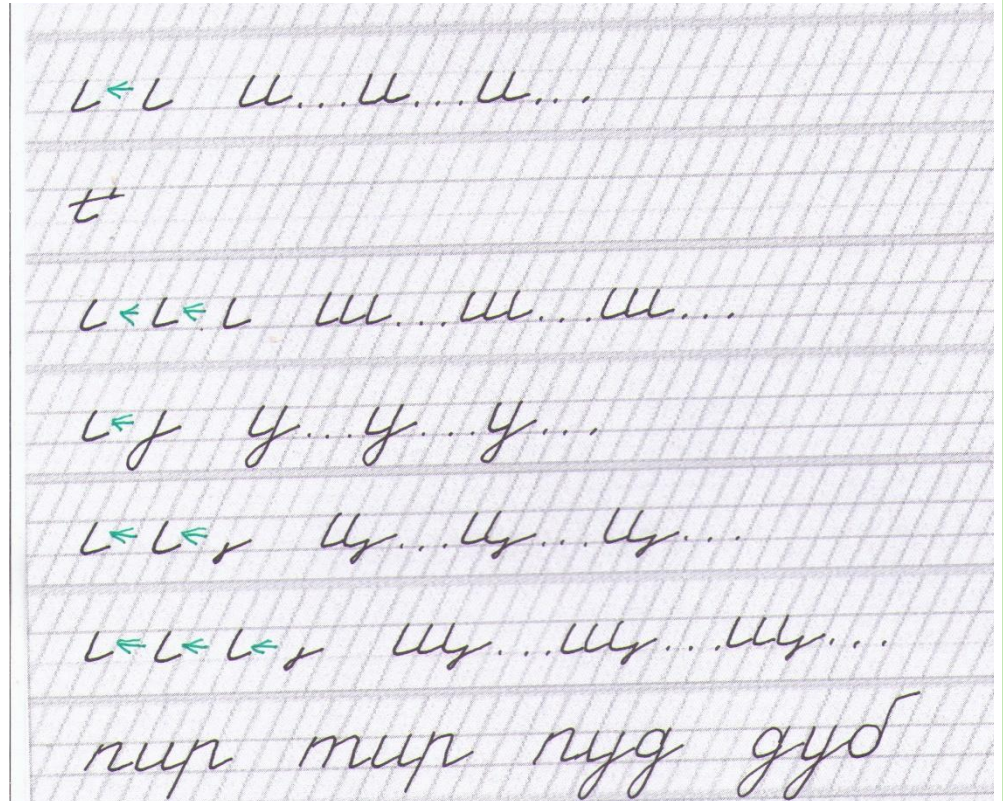 и...и...и...
ш...ш...ш...
у...у...у...
ц...ц...ц...
щ...щ...щ...
пир тир пуд дуб